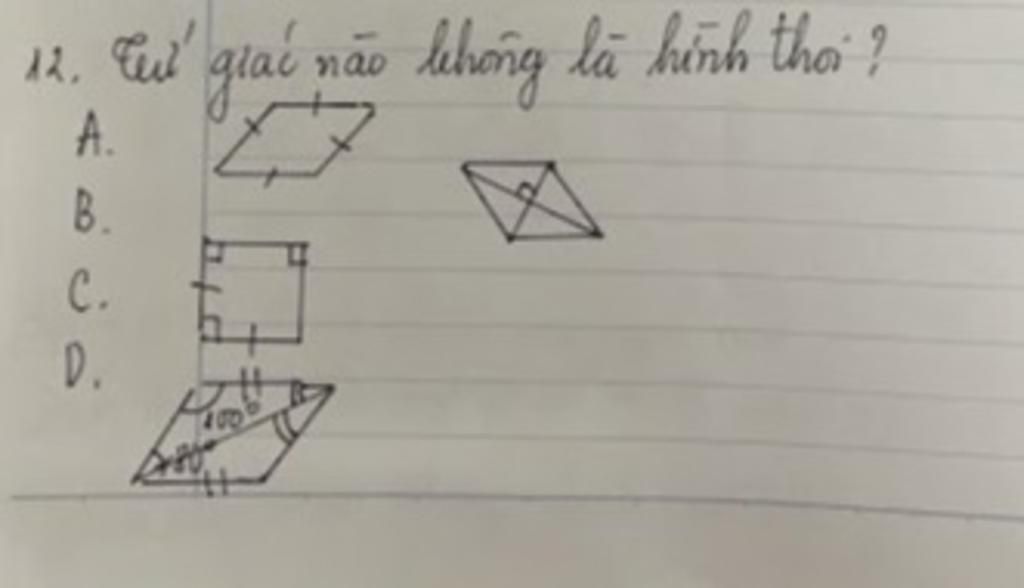 12. Tứ giác nào không là hình thoi?
A.
B.
C.
D.
100°
80°